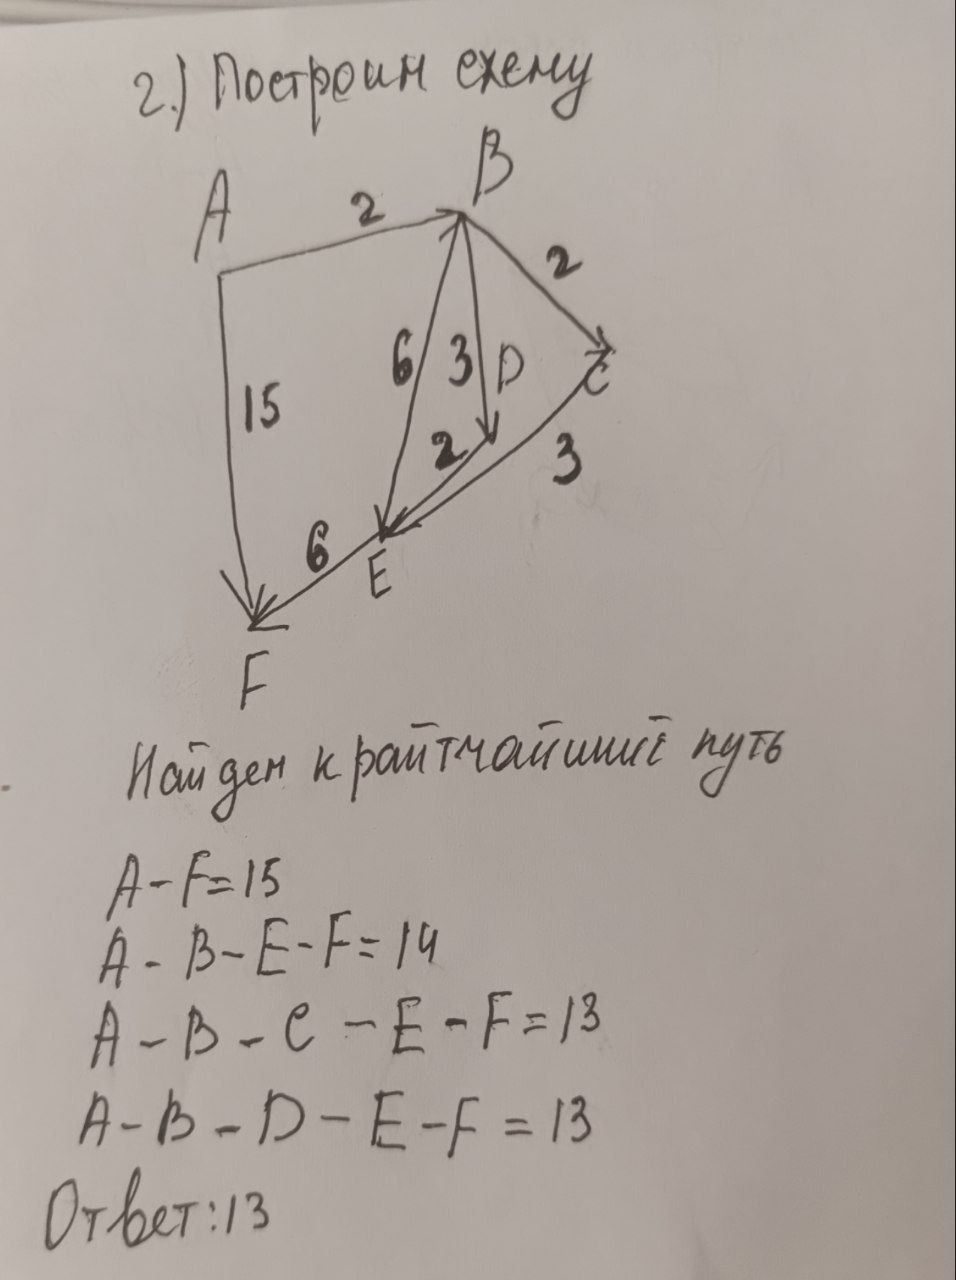 2.) Построим схему
A
2
B
2
15
6
3
D
C
2
3
6
E
F
Найдем крайтчайший путь
A-F=15
A-B-E-F=14
A-B-C-E-F=13
A-B-D-E-F=13
Ответ:13